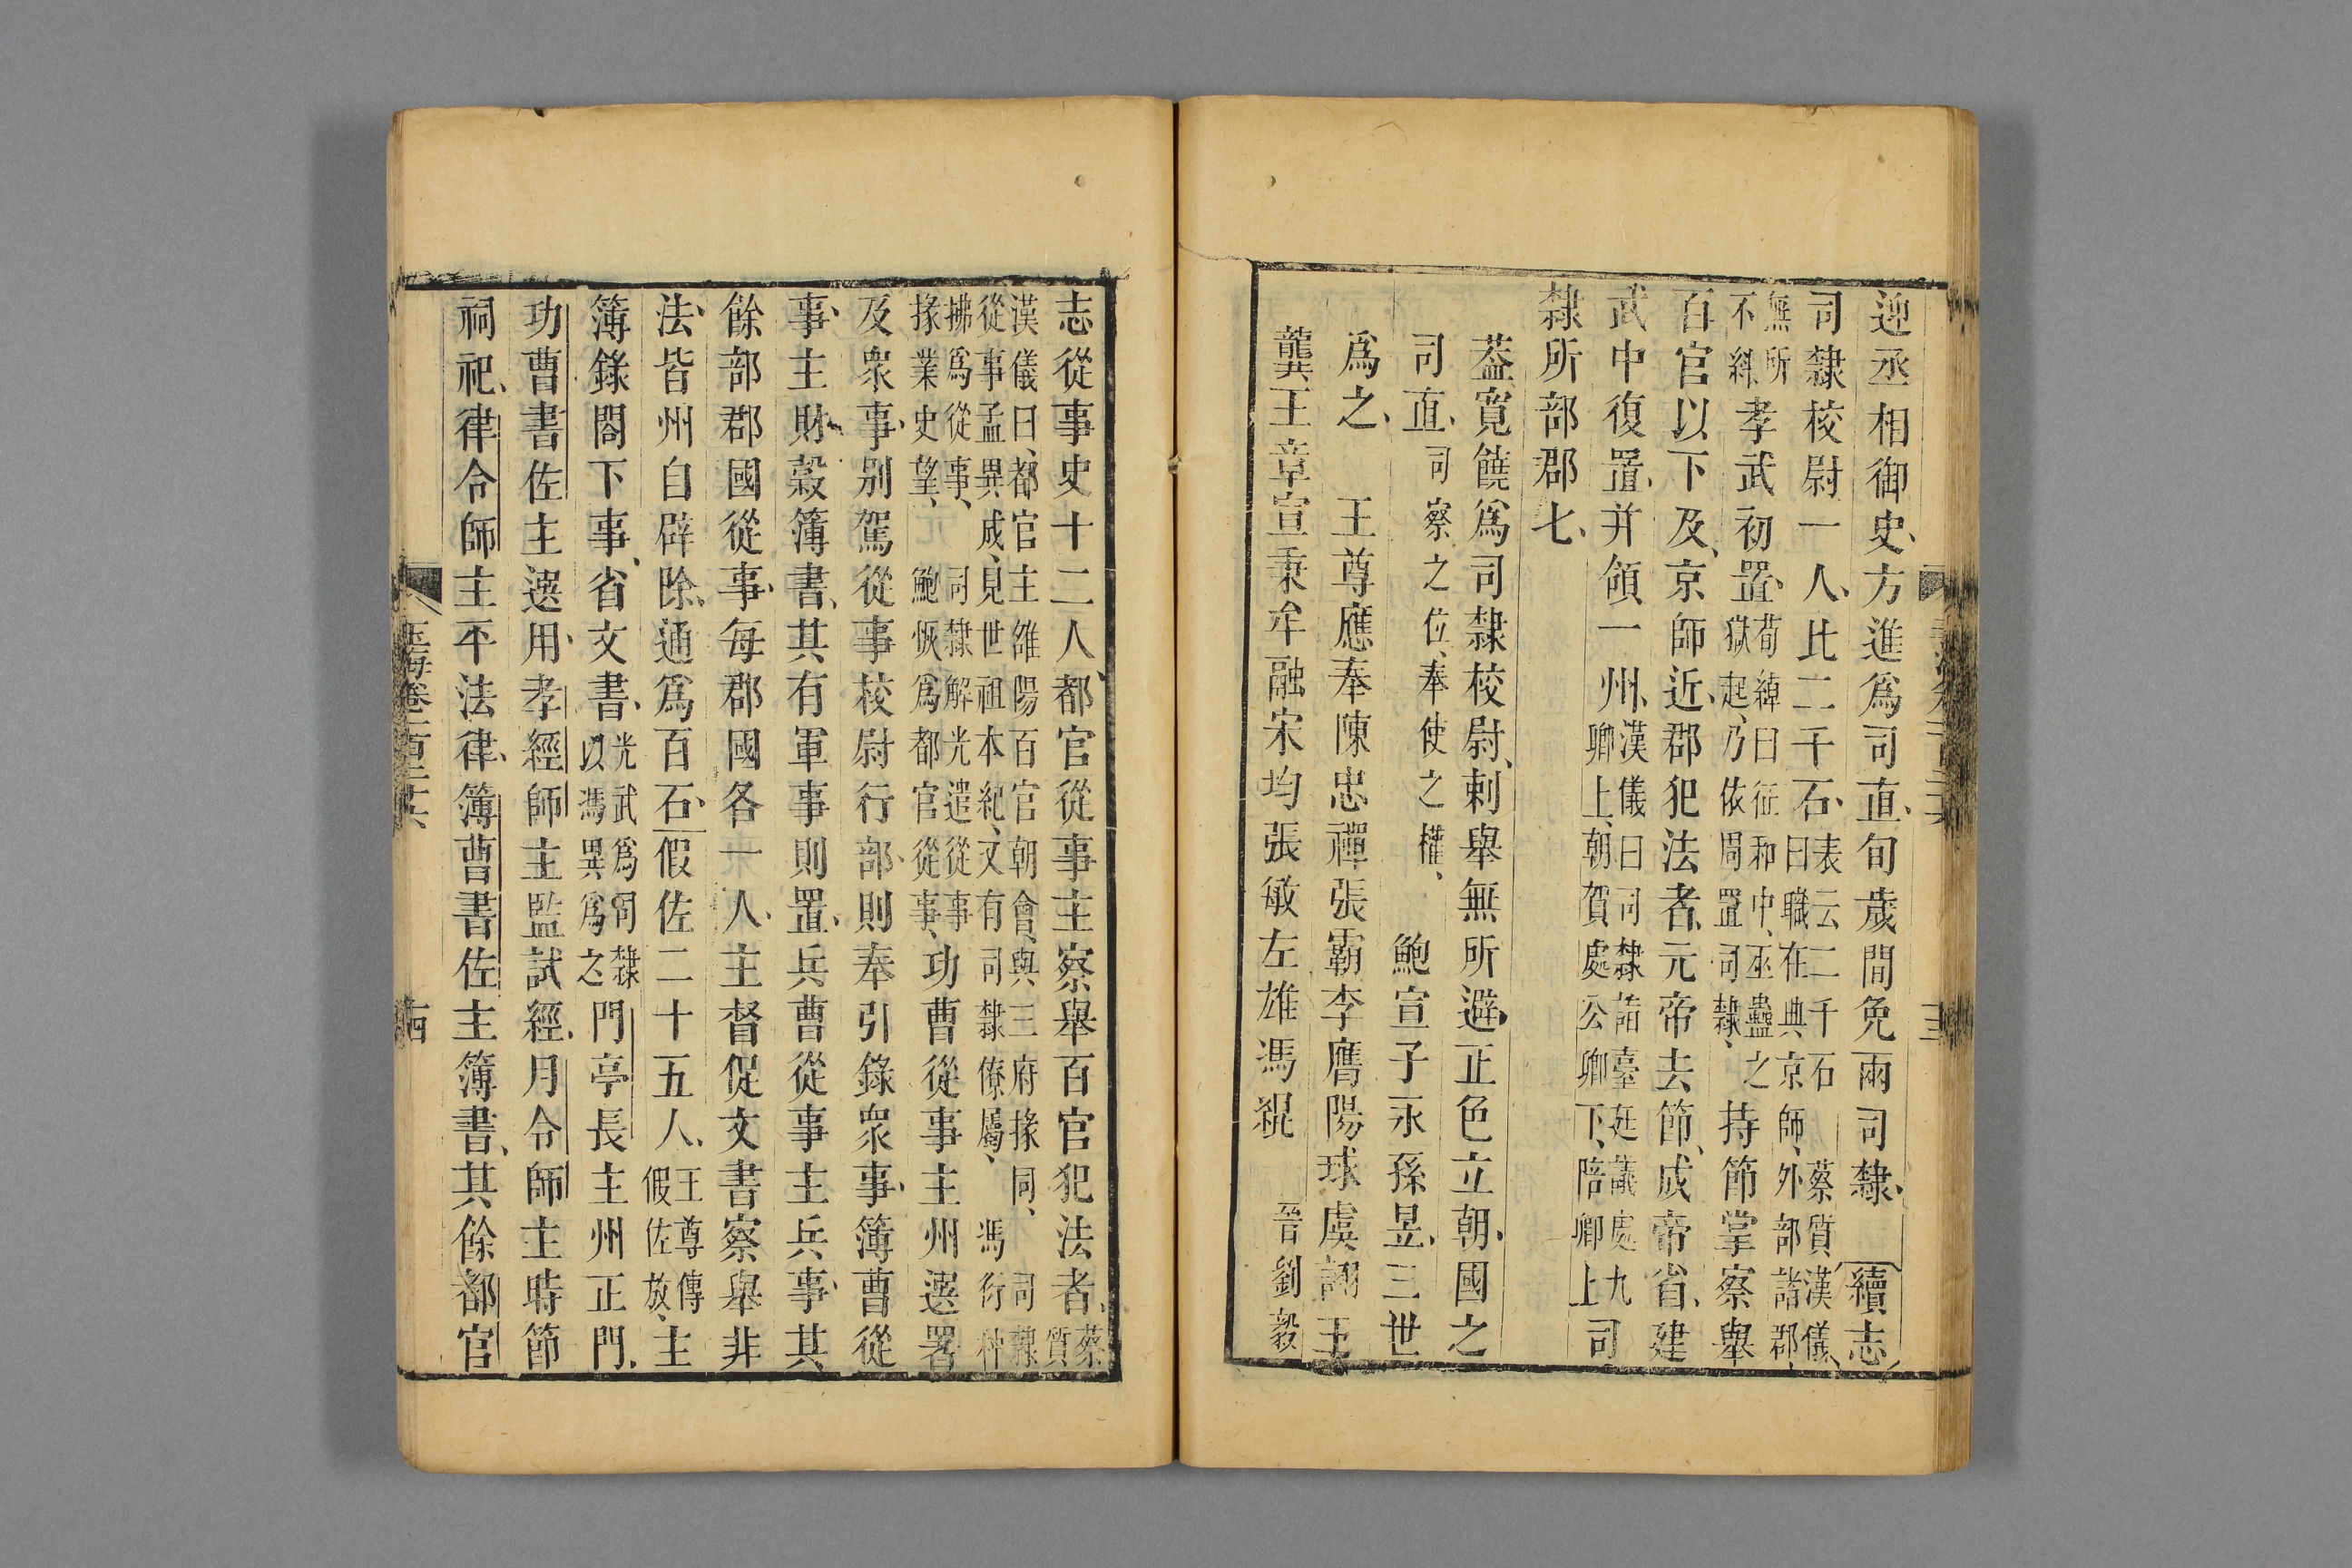 迎丞相御史、方進爲司直、旬歲閒免兩司隸、續志
司隸校尉一人、比二千石、表云二千石 蔡質漢儀、曰職在典京師、外部諸郡、
無所不糾 孝武初置、荀綽曰征和中、巫蠱之獄起、乃依周置司隸、持節掌察舉
百官以下及、京師近郡犯法者、元帝去節、成帝省、建
武中復置、并領一州、漢儀曰司隸詣臺廷議處九卿上、朝賀處公卿下、陪卿上 司
隸所部郡七、
葢寬饒爲司隸校尉、刺舉無所避、正色立朝、國之
司直、司察之位、奉使之權、 鮑宣子永孫昱、三世
爲之、 王尊應奉陳忠禪張霸李膺陽球虞詡王
龔王章宣秉牟融宋均張敏左雄馮緄 晉劉毅
玉海卷一百三十六
志從事史十二人、都官從事主察舉百官犯法者、蔡質
漢儀曰、都官主雒陽百官朝會、與三府掾同、 司隸
從事孟異成、見世祖本紀、又有司隸僚屬、 馮衍
拂爲從事、 司隸解光遣從事
掾業史望、 鮑恢爲都官從事、功曹從事主州選署
及衆事、別駕從事校尉行部、則奉引錄衆事、簿曹從
事、主財穀簿書、其有軍事則置、兵曹從事主兵事、其
餘部郡國從事、每郡國各一人、主督促文書察舉非
法、皆州自辟除、通爲百石、假佐二十五人、王尊傳假佐放、主
簿錄閤下事、省文書、光武爲司隸以馮異爲之 門亭長主州正門、
功曹書佐主選用、孝經師主監試經、月令師主時節
祠祀、律令師主平法律、簿曹書佐主簿書、其餘都官
玉海卷一百三十六
十四